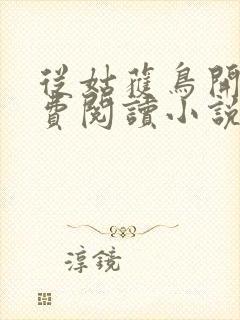 從姑獲鳥開
費閱讀小說
淳鏡